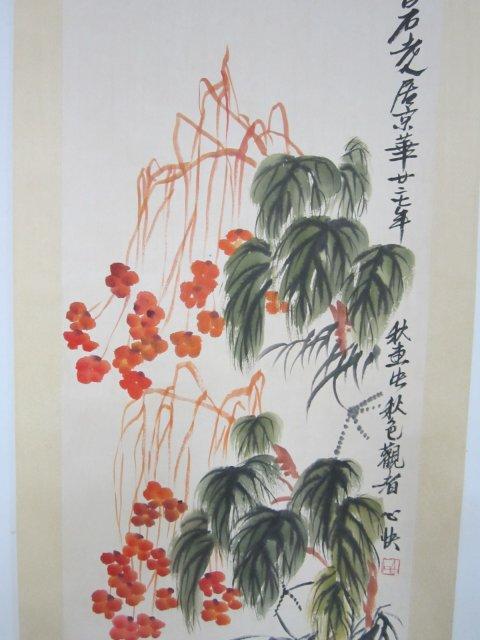 石老人居京華廿二年
秋畫出秋色觀者心快